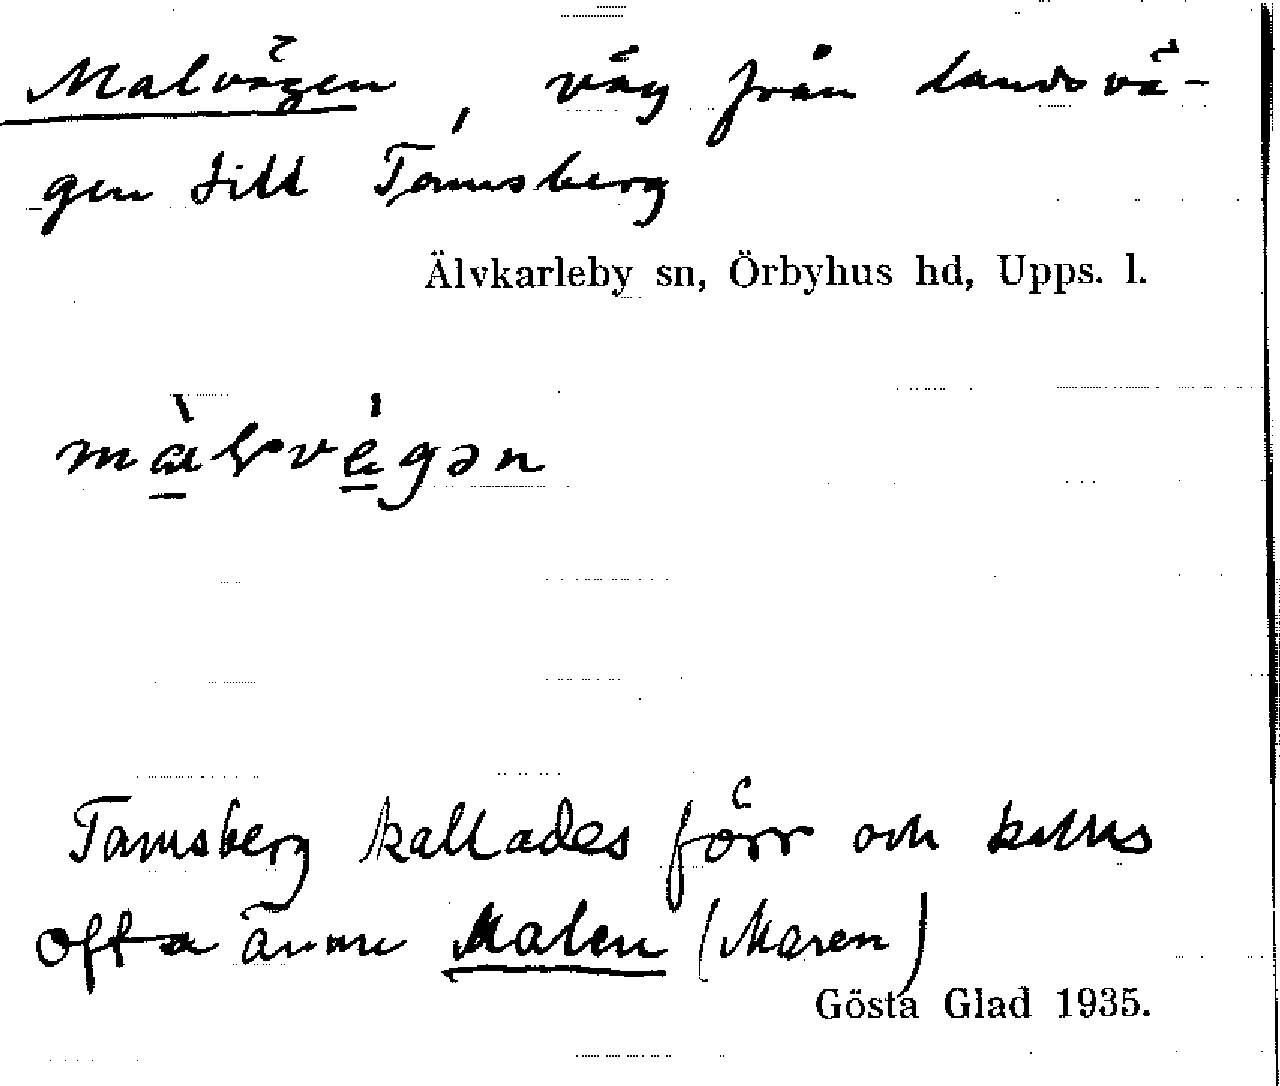 Malvägen, väg från landsvä-
gen till Tamsberg
Älvkarleby sn, Örbyhus hd, Upps. l.
Tamsberg kallades förr och kallas
ofta ännu Malen (Maren)
Gösta Glad 1935.